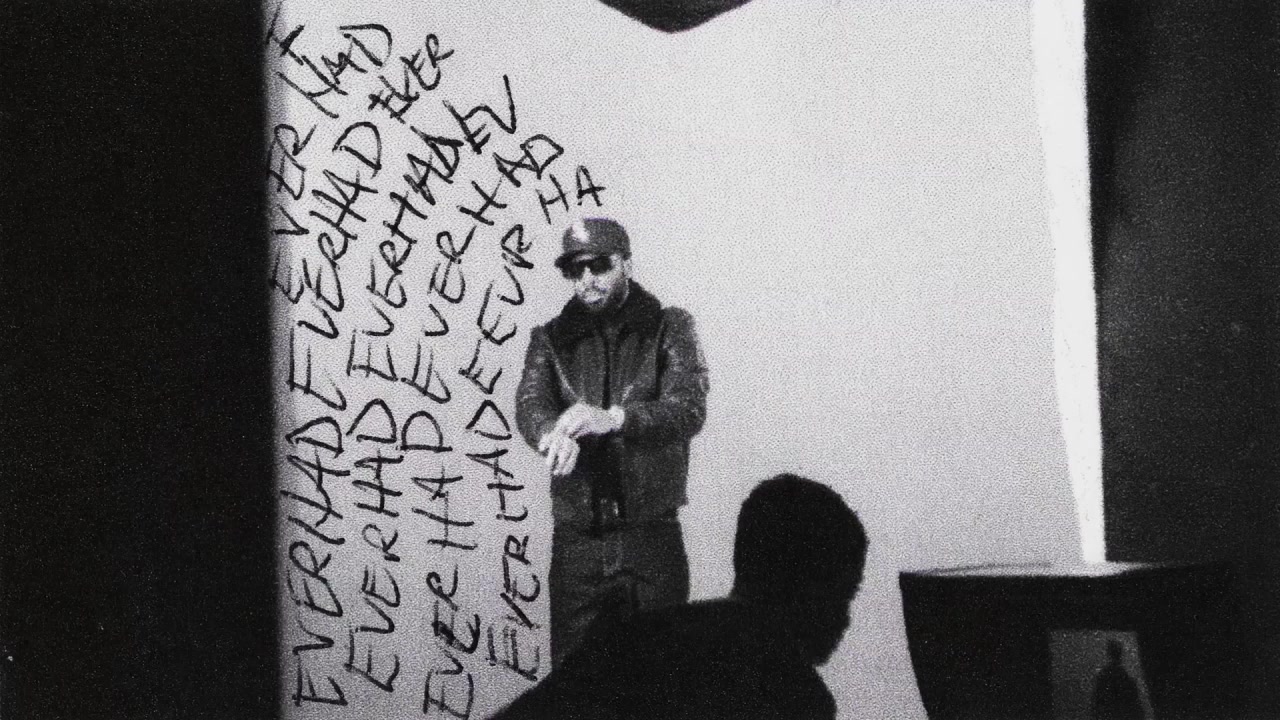 EVER HAD
EVERHAD EVERHAD EVER
EVERHAD EVERHAD EV
EVERHAD EVERHAD
EVERHADE EVR HA